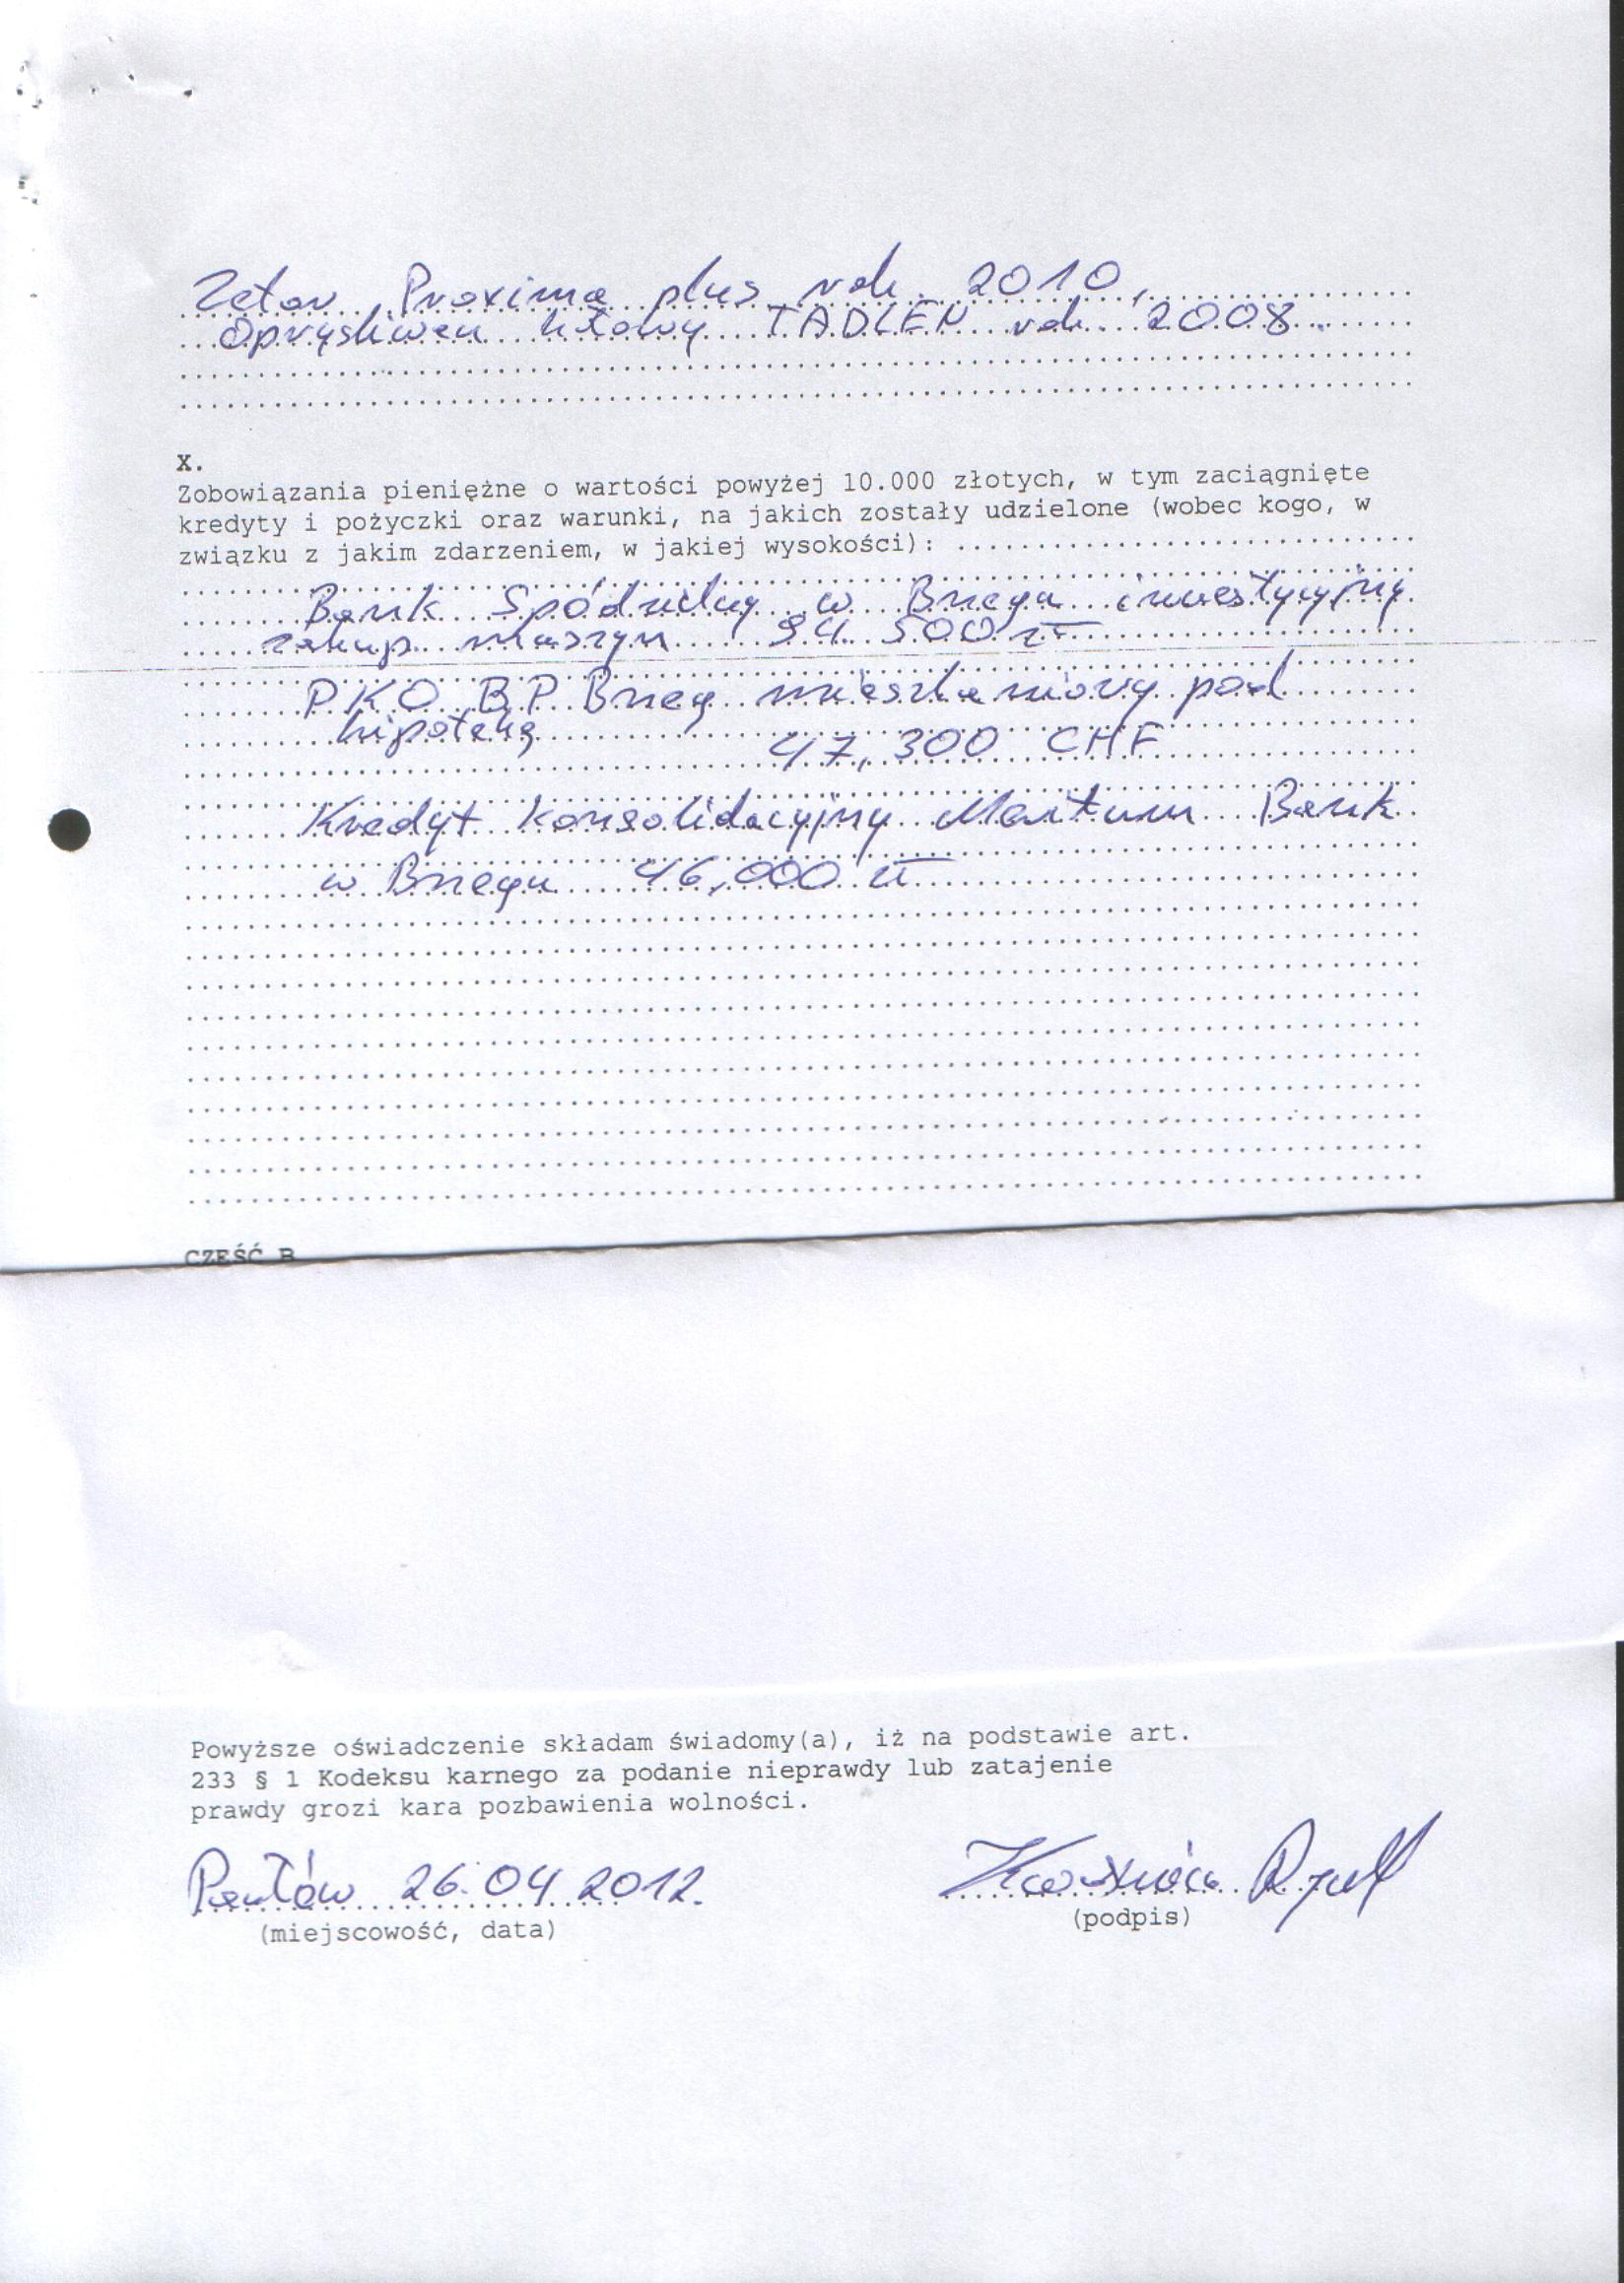 Zetor Proxima plus rok 2010,
Opryskiwacz TADLEN rok 2008.
X.
Zobowiązania pieniężne o wartości powyżej 10.000 złotych, w tym zaciągnięte
kredyty i pożyczki oraz warunki, na jakich zostały udzielone (wobec kogo, w
związku z jakim zdarzeniem, w jakiej wysokości): ..............................
Bank Spółdzielczy w Brzegu inwestycyjny
zakup maszyn 94 500 zł
PKO BP Brzeg mieszkaniowy pod
hipotekę
47,300 CHF
Kredyt Konsolidacyjny Bank
w Brzegu 46,000 zł
CZĘŚĆ B
Powyższe oświadczenie składam świadomy(a), iż na podstawie art.
233 § 1 Kodeksu karnego za podanie nieprawdy lub zatajenie
prawdy grozi kara pozbawienia wolności.
26.04.2012.
(miejscowość, data)
(podpis)